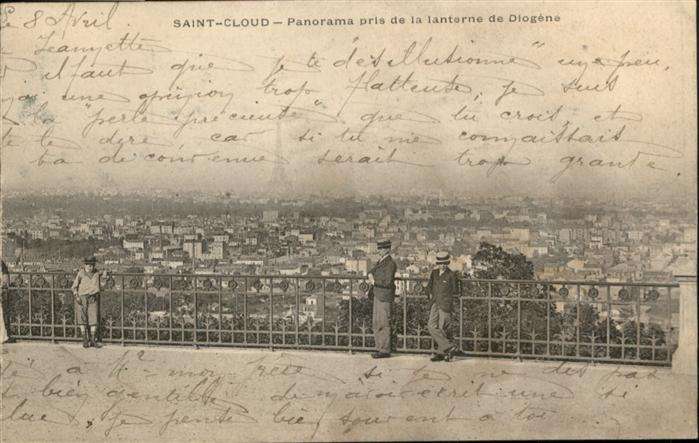 SAINT-CLOUD — Panorama pris de la lanterne de Diogène
Le 8 Avril.
Jeanyette
il faut que je te "désillusionne" un peu,
as une opinion trop flatteuse, je suis
la "perle précieuse" que tu crois, et
te le dire car si tu me connaissais
ta déconvenue serait trop grande.
à Mr mon frère si je ne dis pas
si bien gentille de m'avoir écrit une si
je pense bien souvent à toi